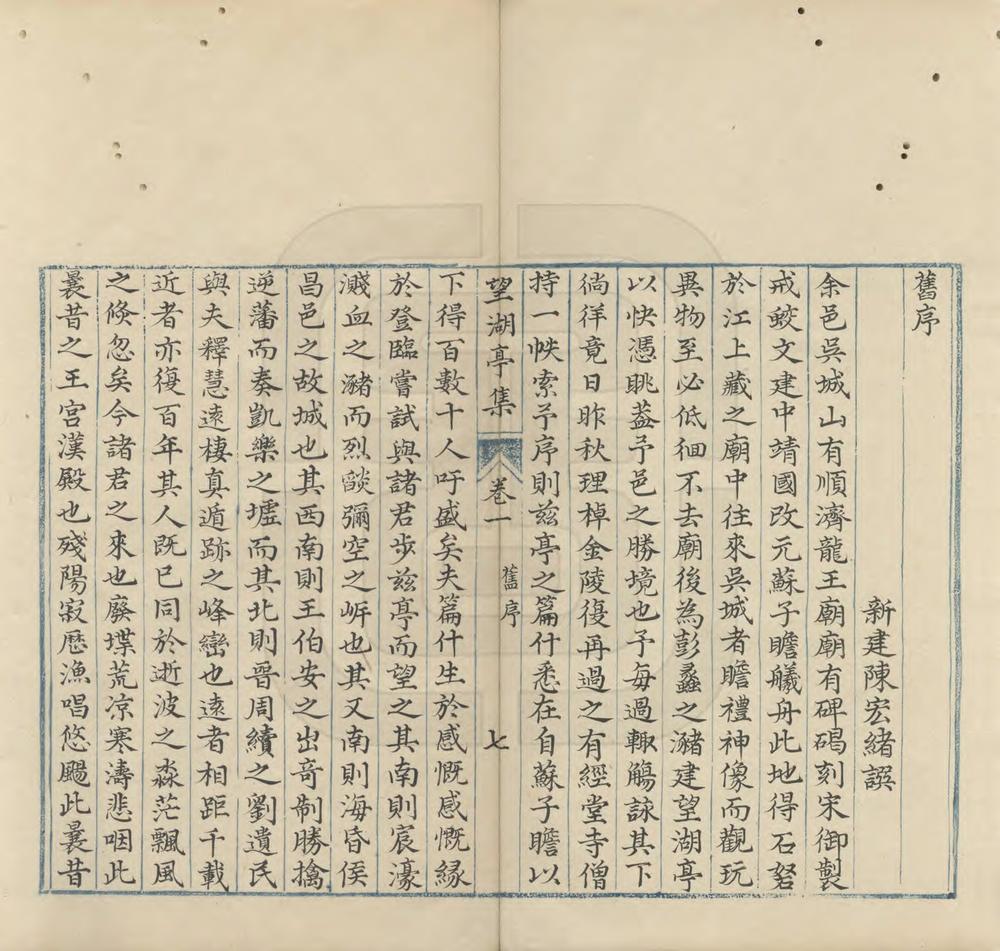 舊序
新建陳宏緒譔
余邑吳城山有順濟龍王廟廟有碑碣刻宋御製
戒蛟文建中靖國改元蘇子瞻艤舟此地得石砮
於江上藏之廟中往來吳城者瞻禮神像而觀玩
異物至必低徊不去廟後為彭蠡之瀦建望湖亭
以快憑眺葢予邑之勝境也予每過輒觴詠其下
徜徉竟日昨秋理棹金陵復再過之有經堂寺僧
持一帙索予序則茲亭之篇什悉在自蘇子瞻以
望湖亭集 卷一 舊序 七
下得百數十人吁盛矣夫篇什生於感慨感慨緣
於登臨嘗試與諸君步茲亭而望之其南則宸濠
濺血之瀦而烈燄彌空之岍也其又南則海昏侯
昌邑之故城也其西南則王伯安之出奇制勝擒
逆藩而奏凱樂之墟而其北則晉周續之劉遺民
與夫釋慧遠棲真遁跡之峰巒也遠者相距千載
近者亦復百年其人既已同於逝波之淼茫飄風
之倏忽矣今諸君之來也廢堞荒凉寒濤悲咽此
曩昔之王宮漢殿也殘陽寂歷漁唱悠颺此曩昔